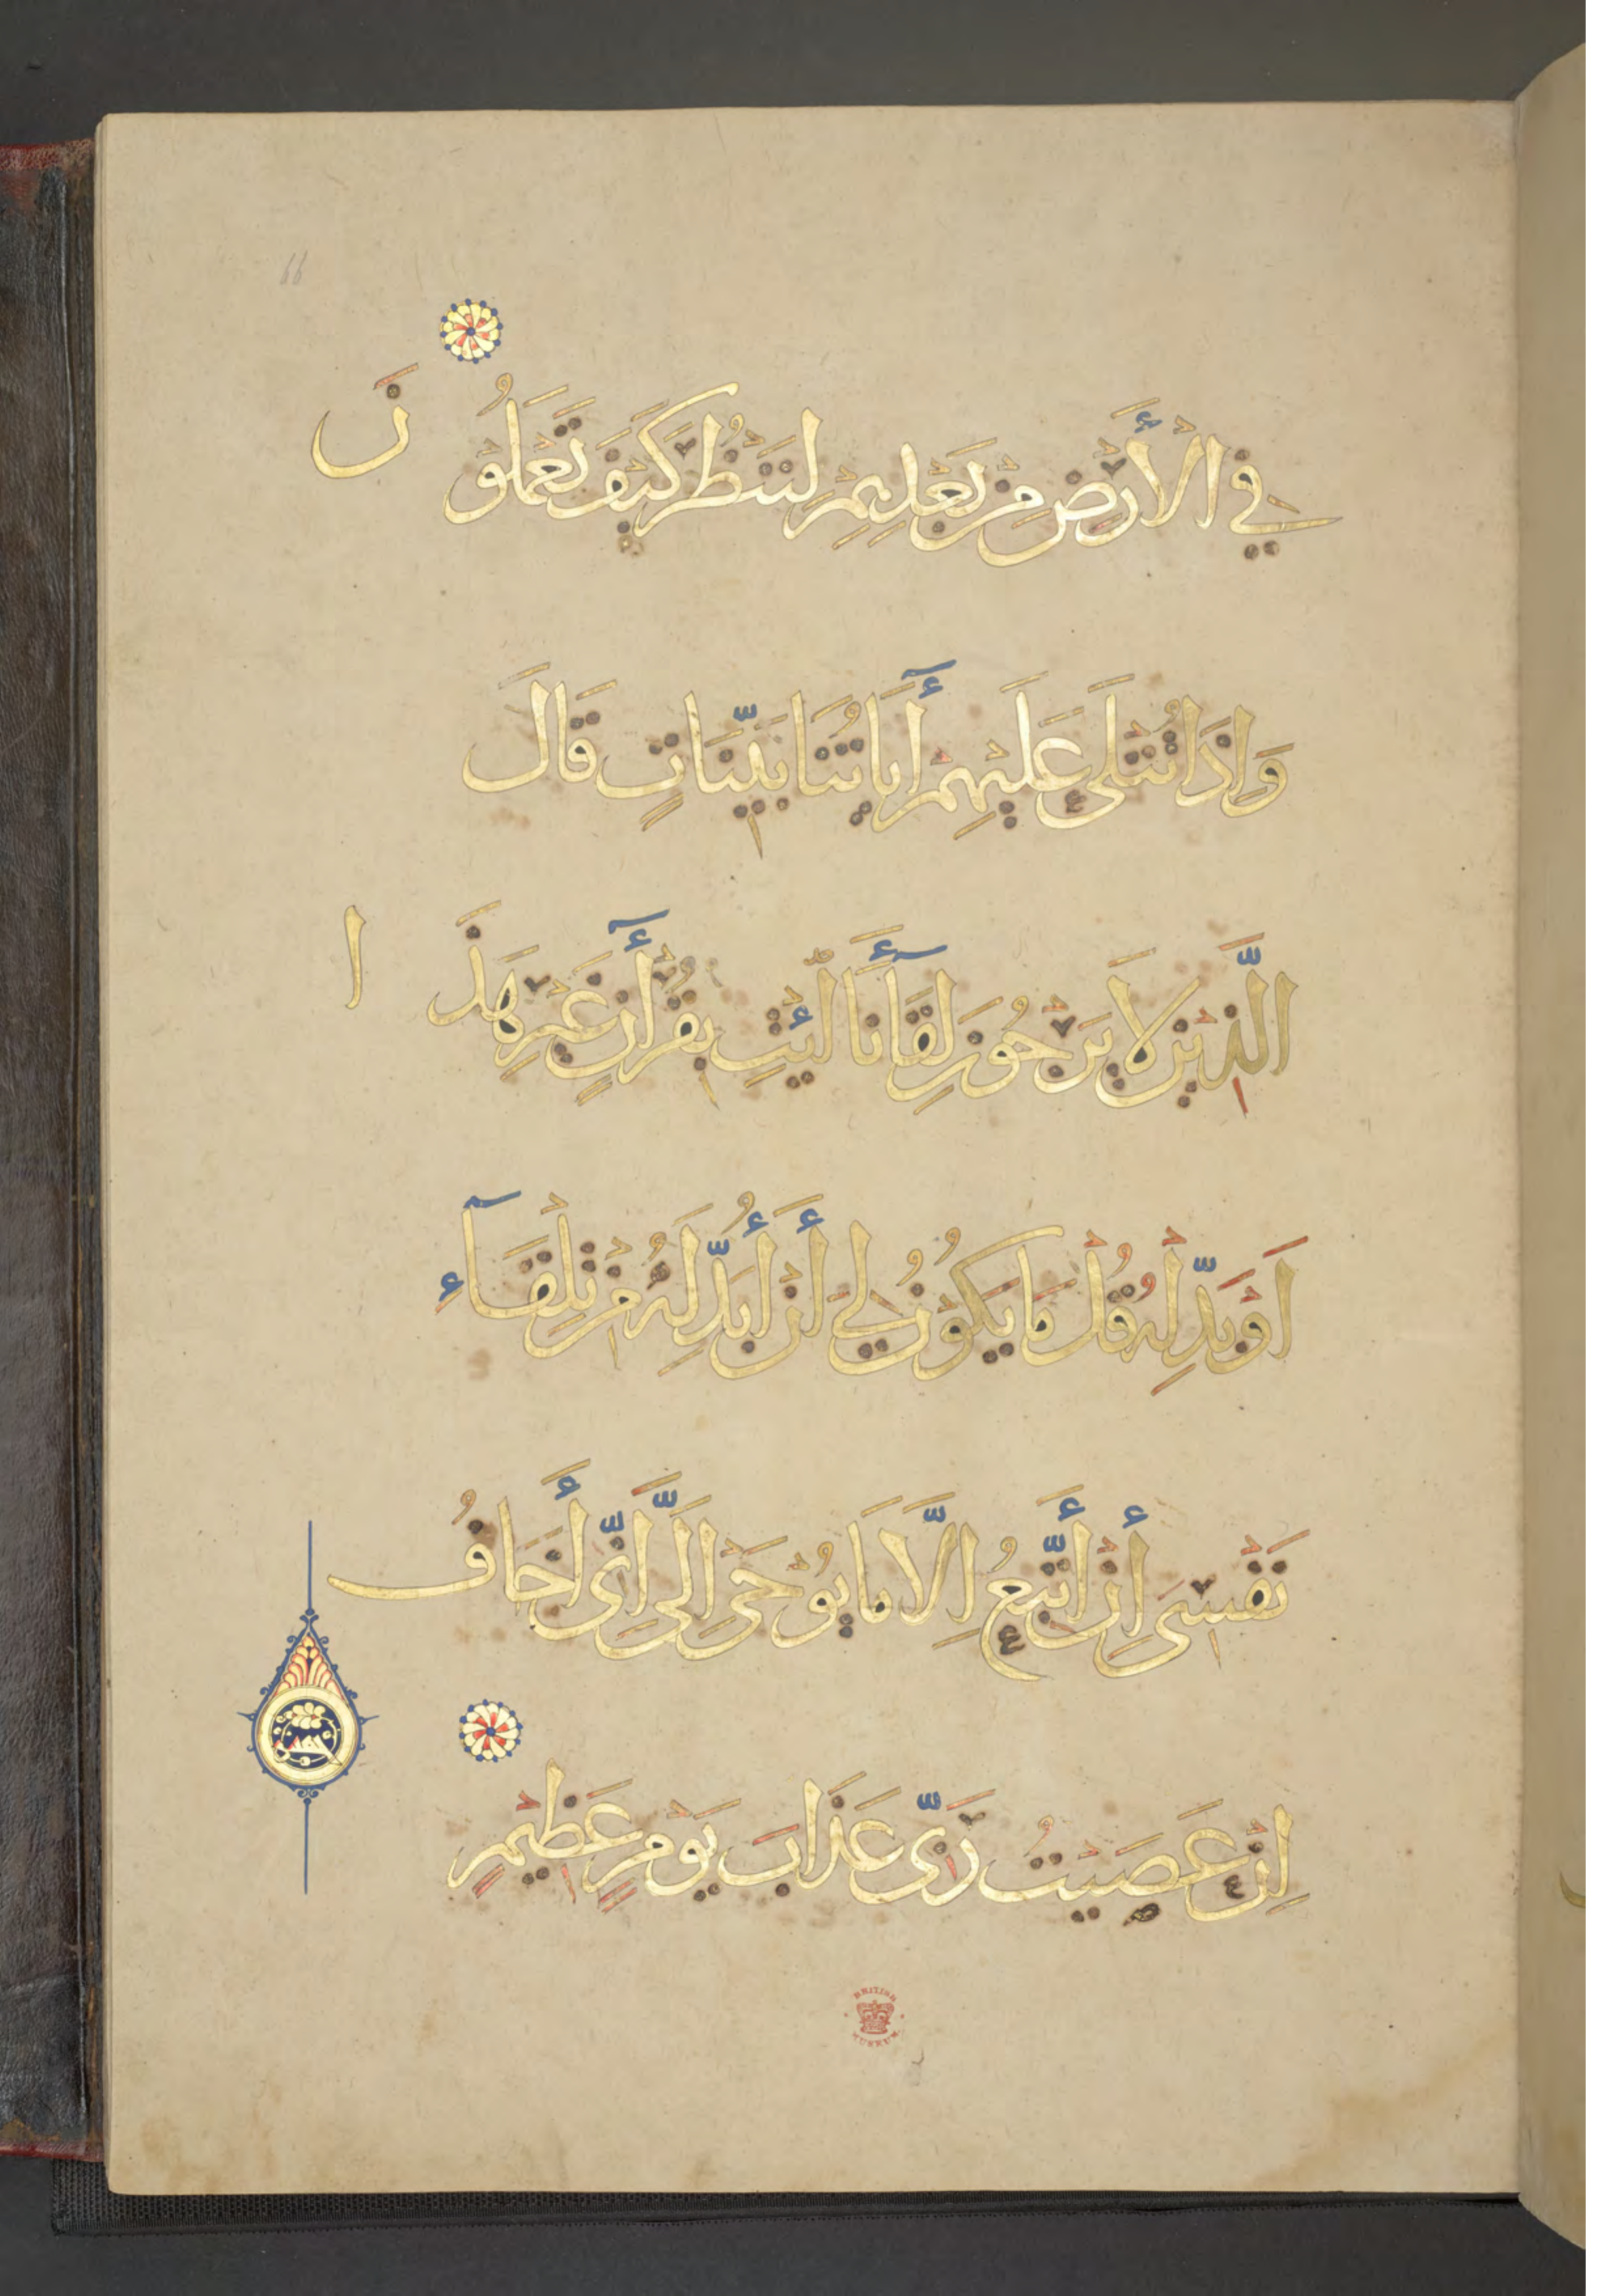 66
فِي الْأَرْضِ مِنْ بَعْدِهِمْ لِنَنْظُرَ كَيْفَ تَعْمَلُونَ
وَاِذَا تُتْلَى عَلَيْهِمْ أَيَاتُنَا بَيِّنَاتٍ قَالَ
الَّذِيْنَ لَا يَرْجُوْنَ لِقَآءَنَا ائْتِ بِقُرْأٰنٍ غَيْرِ هَذَا
اَوْ بَدِّلْهُ قُلْ مَا يَكُوْنُ لِيَ أَنْ أُبَدِّلَهُ مِنْ تِلْقَآءِ
نَفْسِى أِنْ أَتَّبِعُ اِلَّا مَا يُوْحَى اِلَيَّ اِنِّى أَخَافُ
اِنْ عَصَيْتُ رَبِّى عَذَابَ يَوْمٍ عَظِيْمٍ
BRITISH
MUSEUM